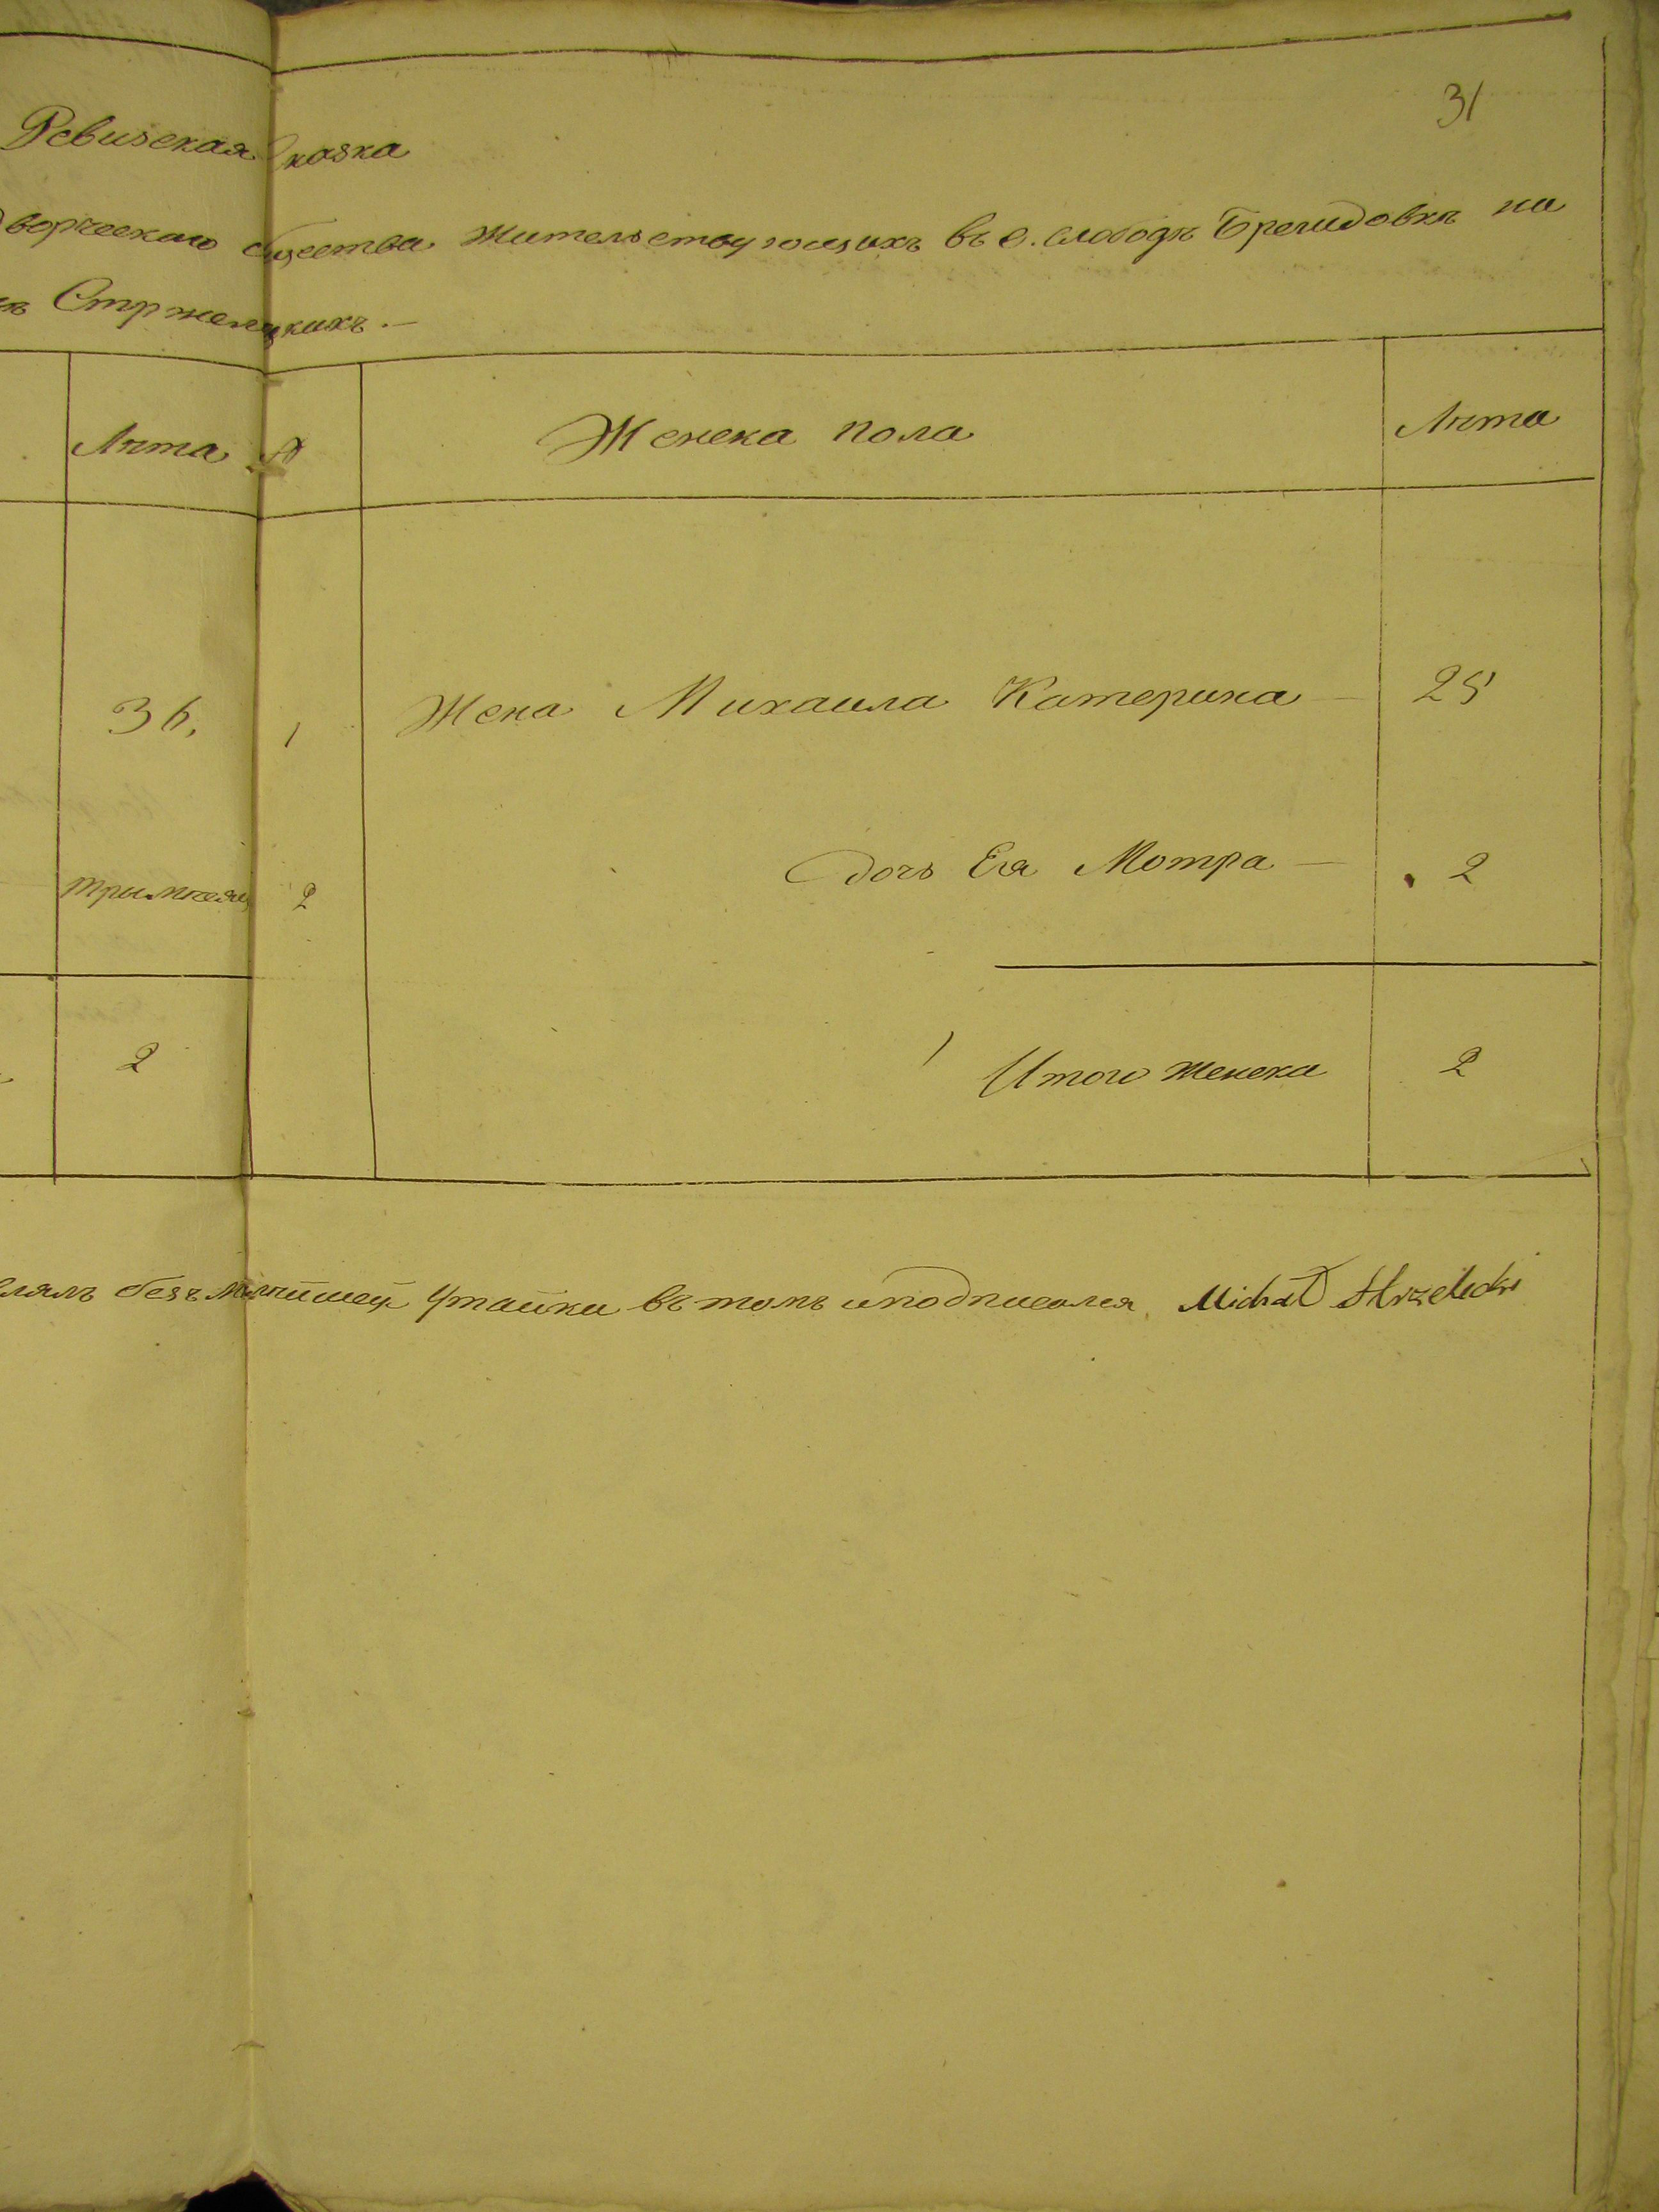 31
Ревизская Сказка
дворческаго общества жительствующихъ въ с. слободѣ Брегидовкѣ на
Стржелецкихъ. —
Лѣта № Женска пола Лѣта
36. 1 Жена Михаила Катерина — 25
три месяц 2 дочь Ея Мотра — 2
2 Итого женска 2
безъ малѣйшей утайки въ томъ и подписался Michał Strzelecki